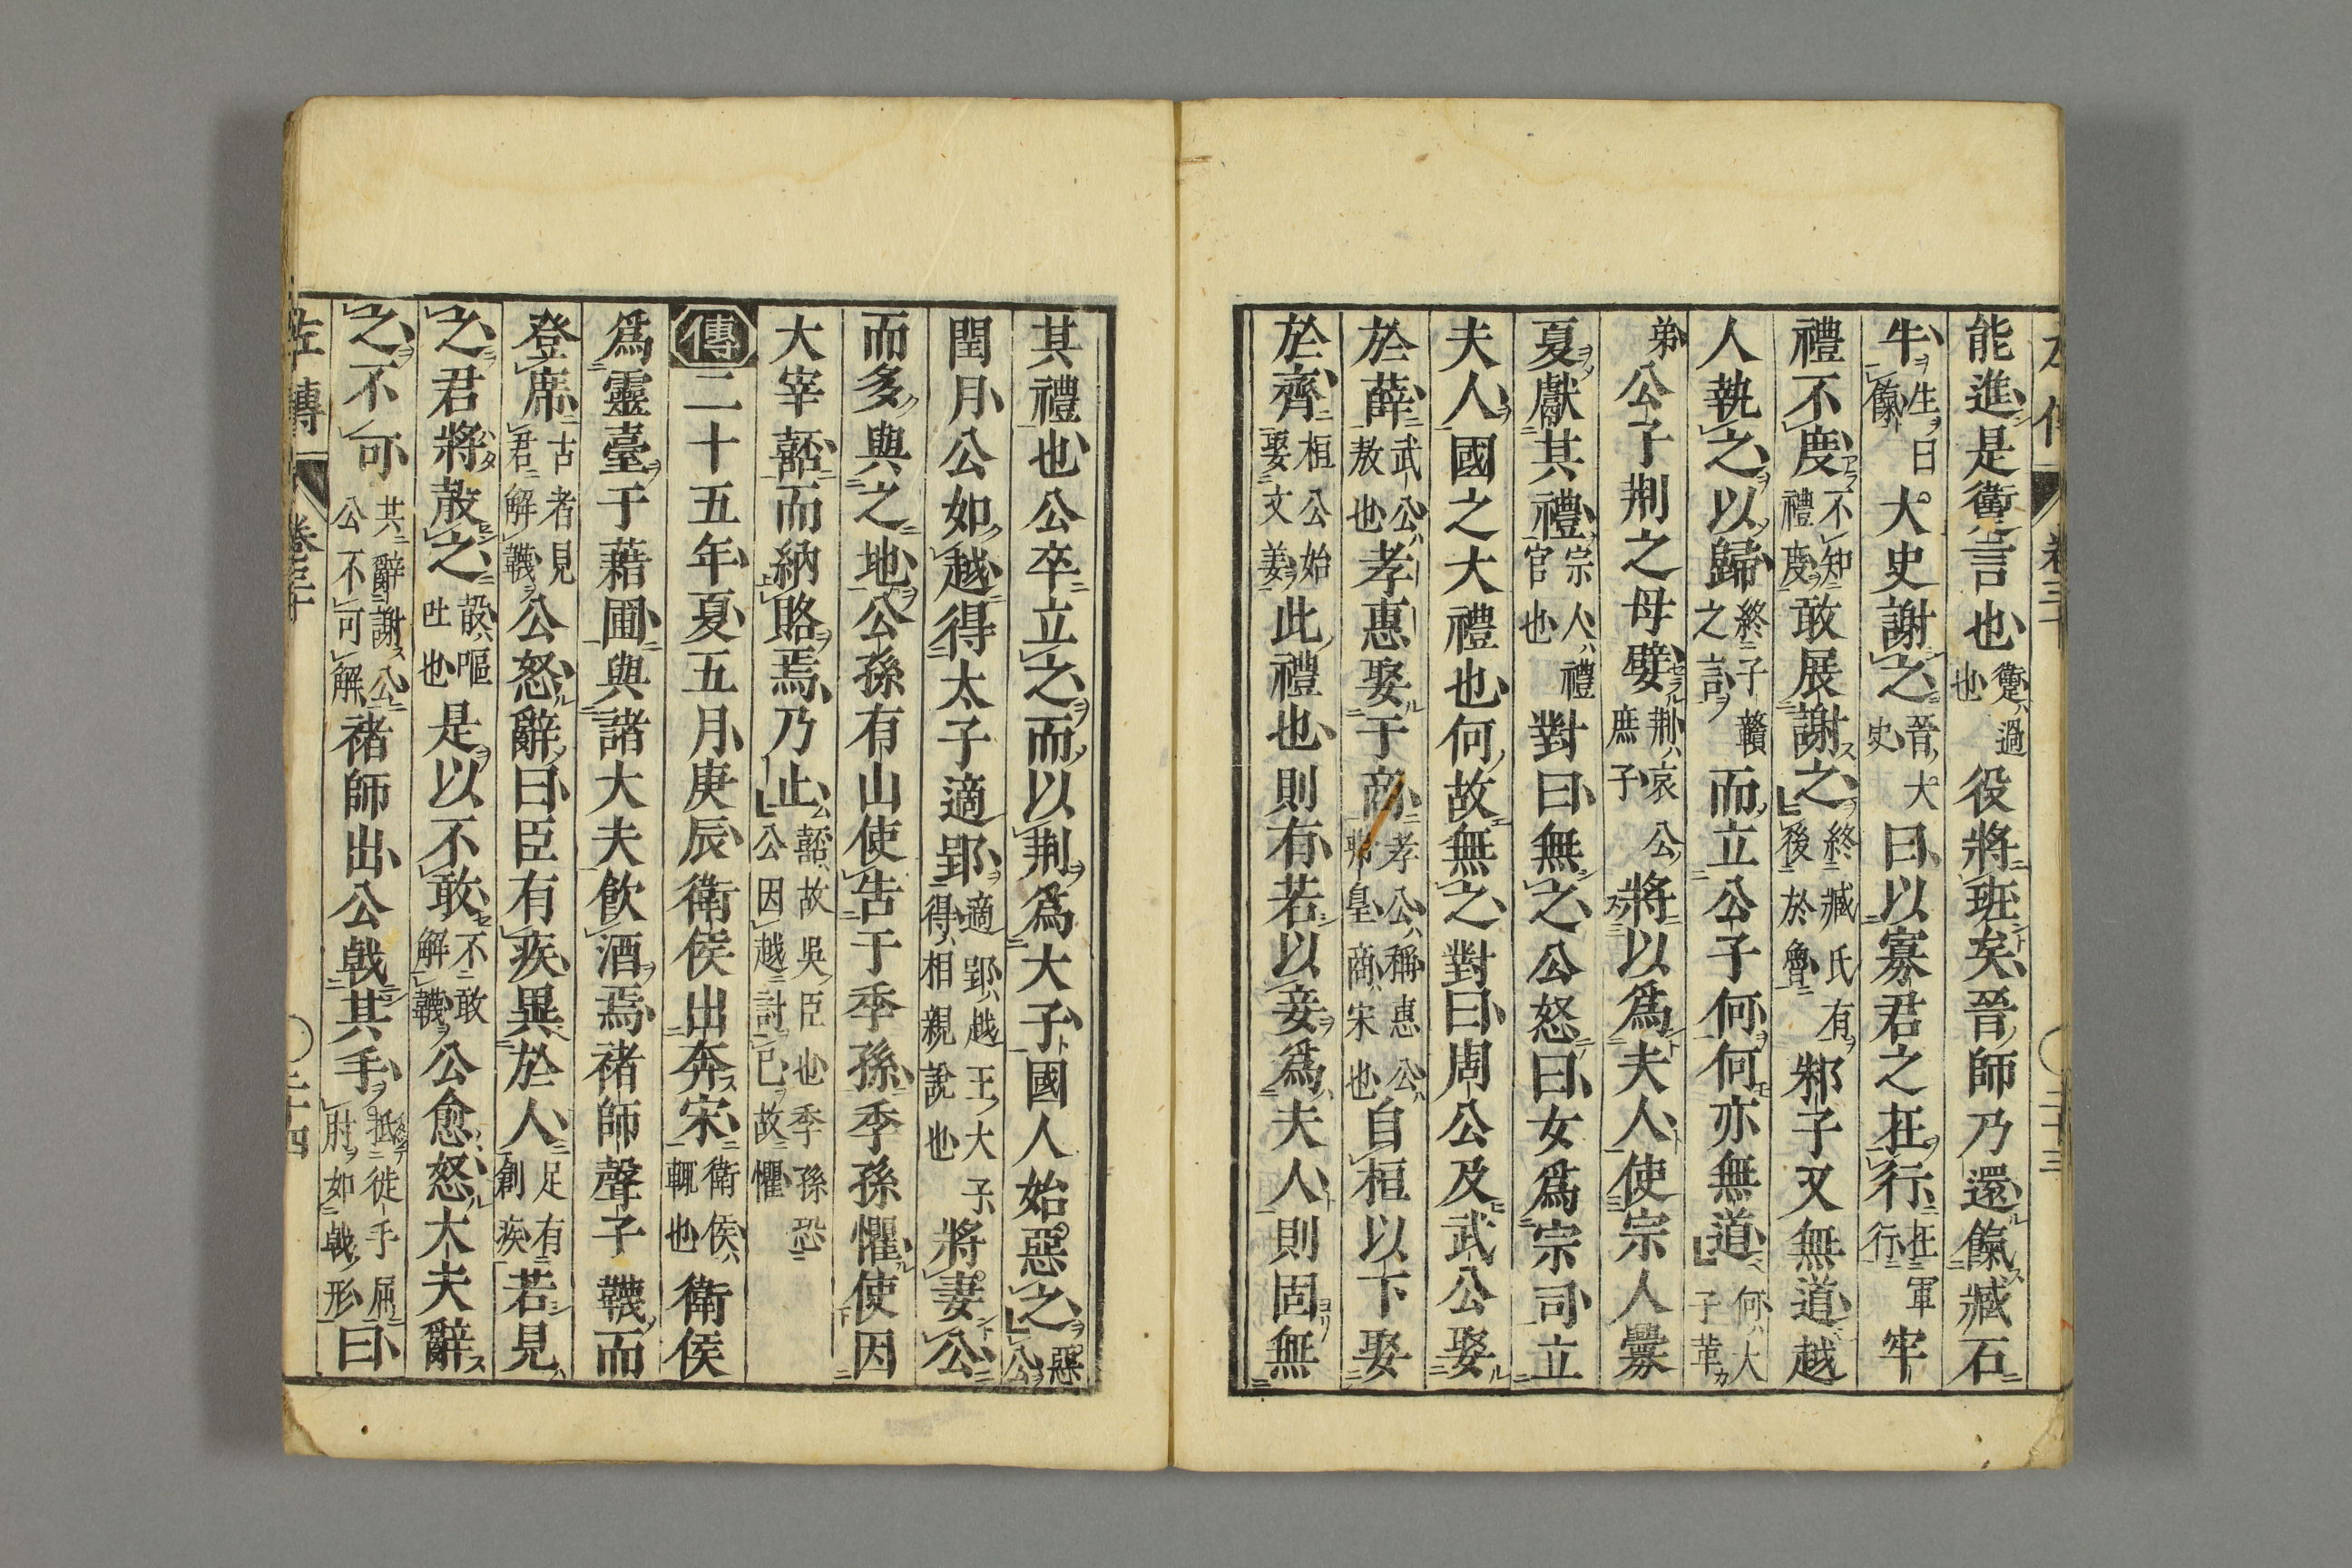 能進是衞言也衞過也役將班矣晉師乃還餼臧石
牛生曰餼大史謝之晉大史曰以寡君之在行在軍行牢
禮不度不知禮度敢展謝之終臧氏有後於魯邾子又無道越
人執之以歸終子贛之言而立公子何何亦無道何大子革弟
公子荆之母嬖荆哀公庶子將以爲夫人使宗人釁
夏獻其禮宗人禮官也對曰無之公怒曰女爲宗司立
夫人國之大禮也何故無之對曰周公及武公娶
於薛武公敖也孝惠娶于商孝公稱惠公弗皇商宋也自桓以下娶
於齊桓公始娶文姜此禮也則有若以妾爲夫人則固無
其禮也公卒立之而以荆爲大子國人始惡之惡公
閏月公如越得太子適郢適郢越王大子得相親說也將妻公
而多與之地公孫有山使告于季孫季孫懼使因
大宰嚭而納賂焉乃止嚭故吳臣也季孫恐公因越討己故懼
傳二十五年夏五月庚辰衛侯出奔宋衛侯輒也衛侯
爲靈臺于藉圃與諸大夫飮酒焉褚師聲子韈而
登席古者見君解韈公怒辭曰臣有疾異於人足有創疾若見
之君將㱿之㱿嘔吐也是以不敢不敢解韈公愈怒大夫辭
之不可共辭謝公公不可解褚師出公戟其手抵徒手屈肘如戟形曰
左傳 卷三十 二十四